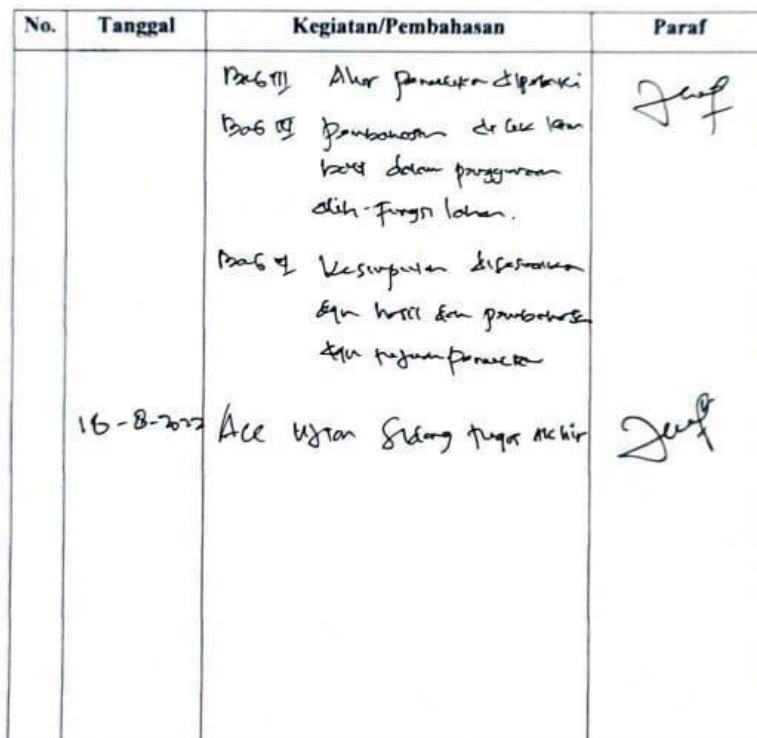 No. Tanggal Kegiatan/Pembahasan Paraf
Bab III Alur penelitian diperbaiki
Bab IV Pembahasan di cek lam
dalam penggunaan
alih-fungsi lahan.
Bab V Kesimpulan disesuaikan
dgn hasil dan pembahasan
dgn tujuan penelitian
16-8-2022 Acc Ujian Sidang tugas Akhir